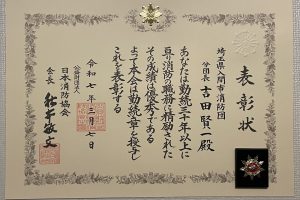 表彰状
埼玉県入間市消防団
分団長 吉田賢一殿
あなたは勤続三十年以上に
亘り消防の職務に精励された
その成績は優秀である
よって本会は勤続章を授与し
これを表彰する
令和七年三月七日
公益財団法人
日本消防協会
会長